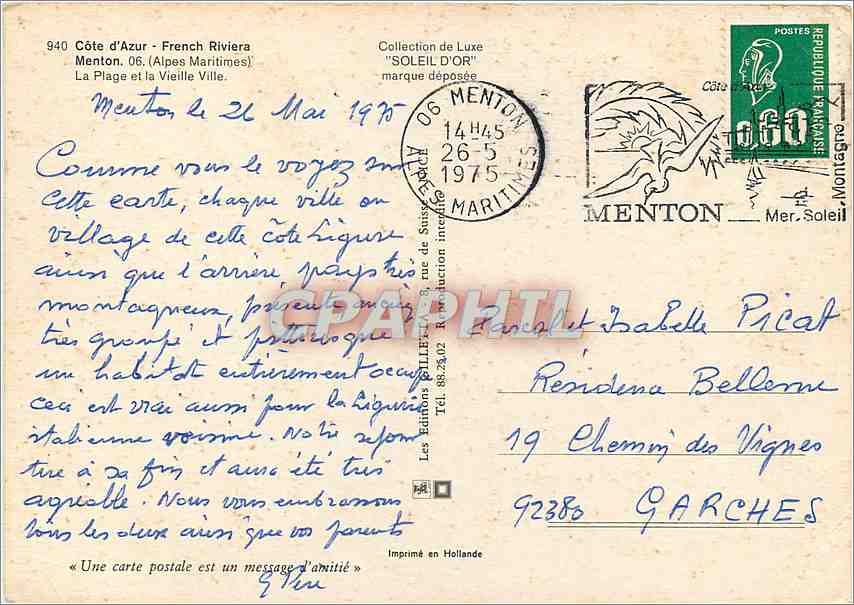 940 Côte d'Azur - French Riviera
Menton. 06. (Alpes Maritimes)
La Plage et la Vieille Ville.
Collection de Luxe
"SOLEIL D'OR"
marque déposée
POSTES
REPUBLIQUE FRANÇAISE
0,60
06 MENTON
14H45
26-5
1975
ALPES MARITIMES
Côte d'Azur
MENTON
Mer. Soleil. Montagne
Menton le 26 Mai 1975
Comme vous le voyez sur
cette carte, chaque ville ou
village de cette côte Ligure
ainsi que l'arrière pays très
montagneux, présente
très groupé et pittoresque
un habitat entièrement occupé
ceci est vrai aussi pour la Ligurie
italienne voisine. Notre séjour
tire à sa fin et aura été très
agréable. Nous vous embrassons
tous les deux ainsi que vos parents
G Père
Pascal et Isabelle PICAT
Résidence Bellevue
19 Chemin des Vignes
92380 GARCHES
Les Editions GILLETTA - 8, rue de Suisse - NICE
Tél. 88.25.02 Reproduction interdite
CPAPHIL
Imprimé en Hollande
« Une carte postale est un message d'amitié »